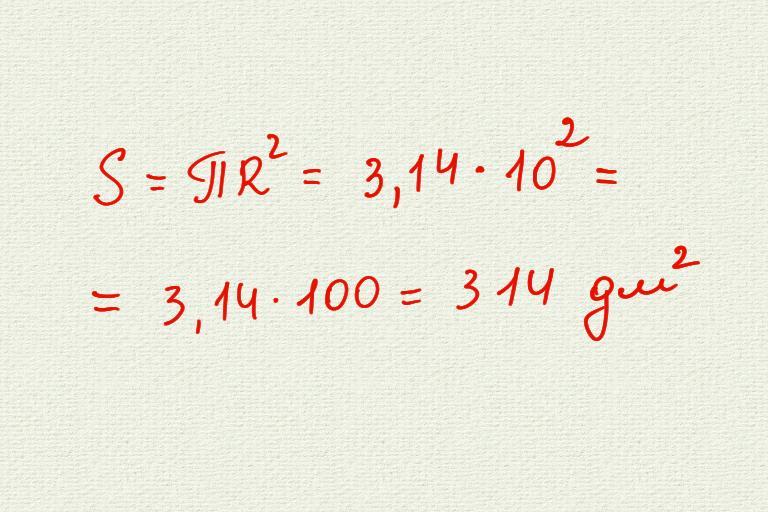 S = πR² = 3,14 · 10² =
= 3,14 · 100 = 314 дм²